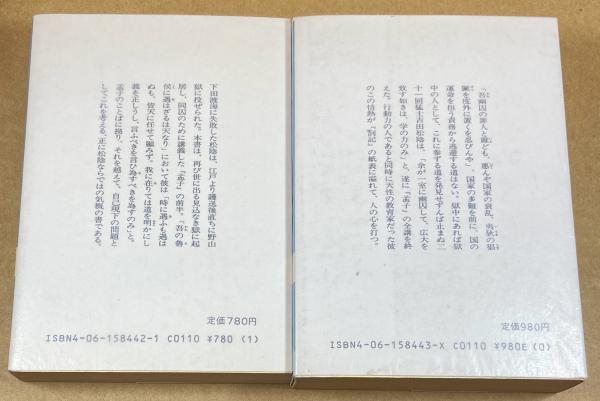 下田渡海に失敗した松陰は、江戸より護送後直ちに野山
獄に投ぜられた。本書は、再び世に出る見込なき獄に起
居し、同囚のために講義した『孟子』の前半。「吾の魯
侯に遇はざるは天なり」において彼は「時に遇ふも遇は
ぬも、皆天に任せて顧みず。我に在りては道を明かにし
義を正しうし、言ふべきを言ひ為すべきを為すのみ」と。
孟子のことばに拠り、それを越えて、自己現下の問題と
してこれを考える。正に松陰ならではの気概の書である。
定価780円
ISBN4-06-158442-1 C0110 ¥780 (1)
「吾幽囚の罪人と雖ども、悪んぞ国家の衰乱、夷狄の猖
獗を度外に置くを忍びんや」国家の多難を前に、国の
運命を担う責務から逃避する道はない。獄中にあれば獄
中の人として、これに参ずる道を発見せずんば止まぬ二
十一回猛士吉田松陰は、「余が一室に幽囚して、広大を
致す如きは、学の力のみ」と、遂に『孟子』の全講を終
えた。行動力の人であると同時に天性の教育家だった彼
のこの情熱が『箚記』の紙表に溢れて、人の心を打つ。
定価980円
ISBN4-06-158443-X C0110 ¥980E (0)